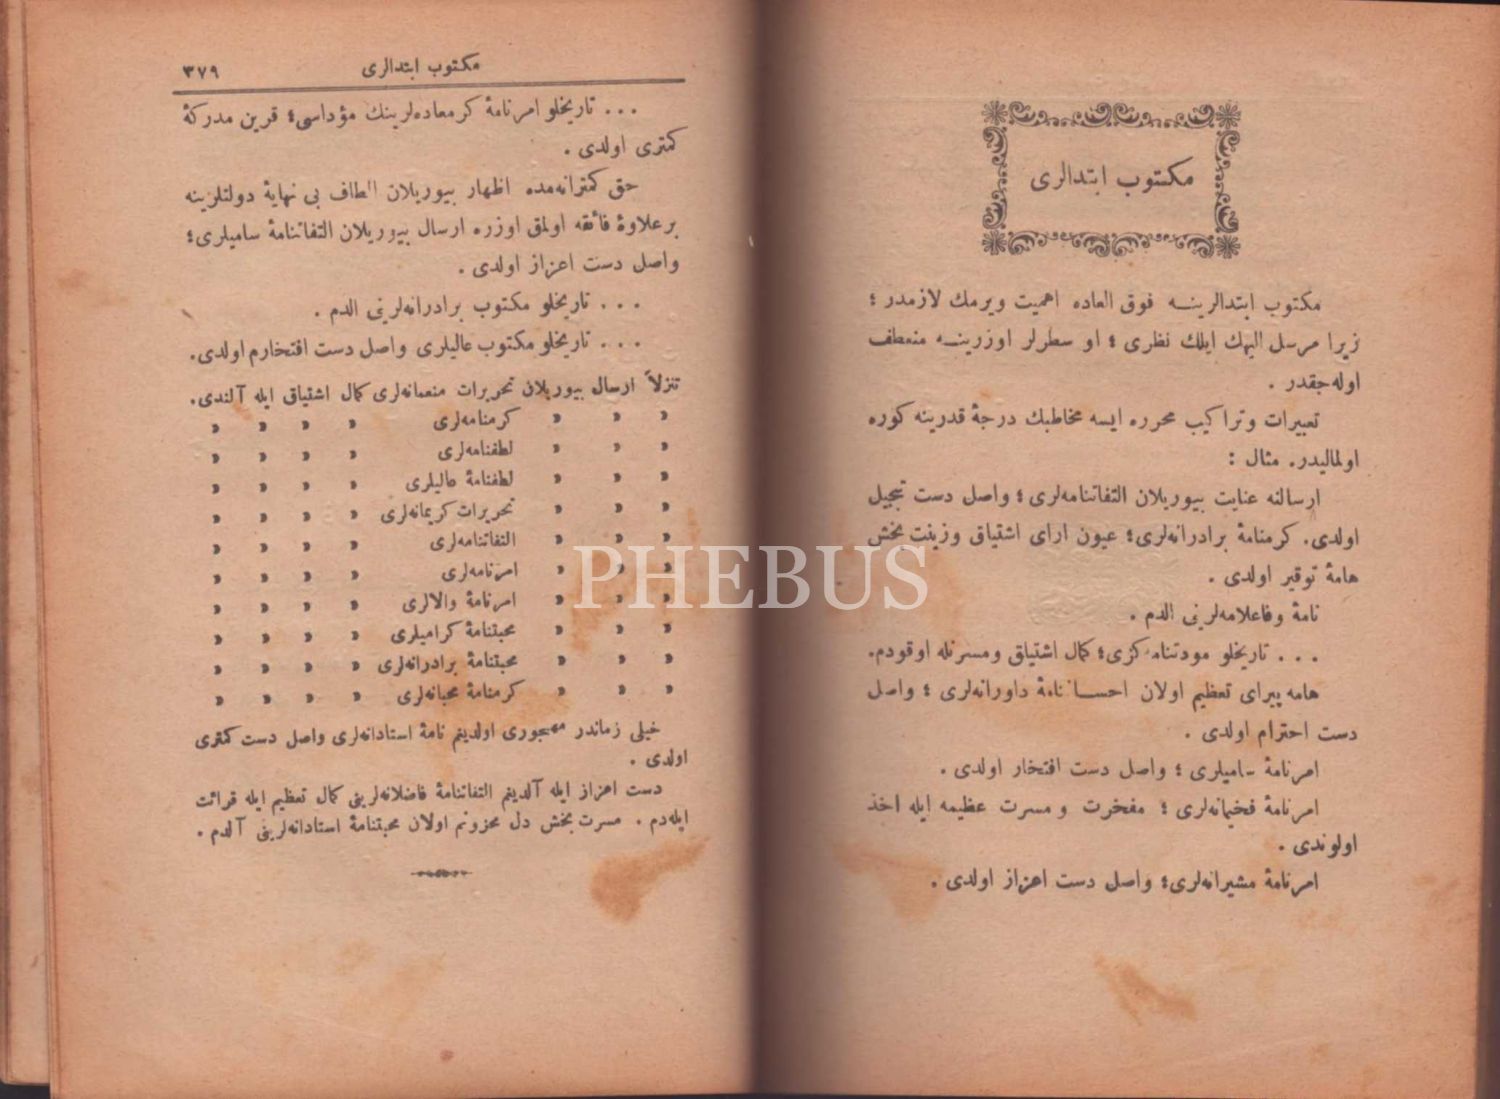 مكتوب ابتدالری
مكتوب ابتدالرینــه فوق العاده اهمیت ویرمك لازمدر ؛
زیرا مرسل الیهك ایلك نظری ؛ او سطرلر اوزرینــه منعطف
اوله‌جقدر .
تعبیرات وتراكیب محرره ایسه مخاطبك درجهٔ قدرینه كوره
اولمالیدر. مثال :
ارسالنه عنایت بیوریلان التفاتنامه‌لری ؛ واصل دست تبجیل
اولدی. كرمنامهٔ برادرانه‌لری؛ عیون ارای اشتیاق وزینت بخش
هامهٔ توقیر اولدی .
نامهٔ وفاعلامه‌لرینی الدم .
... تاریخلو مودتنامه‌كزی؛ كمال اشتیاق ومسرتله اوقودم.
هامه پیرای تعظیم اولان احســانامهٔ داورانه‌لری ؛ واصل
دست احترام اولدی .
امرنامهٔ سامیلری ؛ واصل دست افتخار اولدی .
امرنامهٔ فخیمانه‌لری ؛ مفخرت و مسرت عظیمه ایله اخذ
اولوندی .
امرنامهٔ مشیرانه‌لری؛ واصل دست اهزاز اولدی .
مكتوب ابتدالری ٣٧٩
... تاریخلو امرنامهٔ كرمعاده‌لرینك مؤداسی؛ قرین مدركهٔ
كمتری اولدی .
حق كمترانه‌مده اظهار بیوریلان الطاف بی نهایهٔ دولتلرینه
برعلاوهٔ فائقه اولمق اوزره ارسال بیوریلان التفاتنامهٔ سامیلری؛
واصل دست اعزاز اولدی .
... تاریخلو مكتوب برادرانه‌لرینی الدم .
... تاریخلو مكتوب عالیلری واصل دست افتخارم اولدی.
تنزلاً ارسال بیوریلان تحریرات منعمانه‌لری كمال اشتیاق ایله آلندی.
» » » كرمنامه‌لری » » » »
» » » لطفنامه‌لری » » » »
» » » لطفنامهٔ عالیلری » » » »
» » » تحریرات كریمانه‌لری » » » »
» » » التفاتنامه‌لری » » » »
» » » امرنامه‌لری » » » »
» » » امرنامهٔ والالری » » » »
» » » محبتنامهٔ كرامیلری » » » »
» » » محبتنامهٔ برادرانه‌لری » » » »
» » » كرمنامهٔ محبانه‌لری » » » »
خیلی زماندر مهجوری اولدیغم نامهٔ استادانه‌لری واصل دست كمتری
اولدی .
دست اهزاز ایله آلدیغم التفاتنامهٔ فاضلانه‌لرینی كمال تعظیم ایله قرائت
ایله‌دم . مسرت بخش دل محزونم اولان محبتنامهٔ استادانه‌لرینی آلدم .
PHEBUS